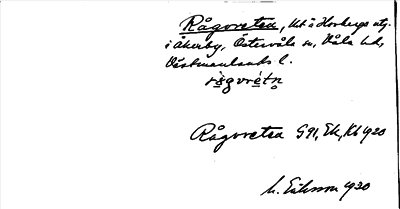 Rågvretea, ht å Horbergs utj.
i Åkerby, Östervåla sn, Våla hd,
Västmanlands l.
rɑ̀gvrétn̥
Rågvretea G 91, Ek, Kb 1920
M. Eriksson 1920